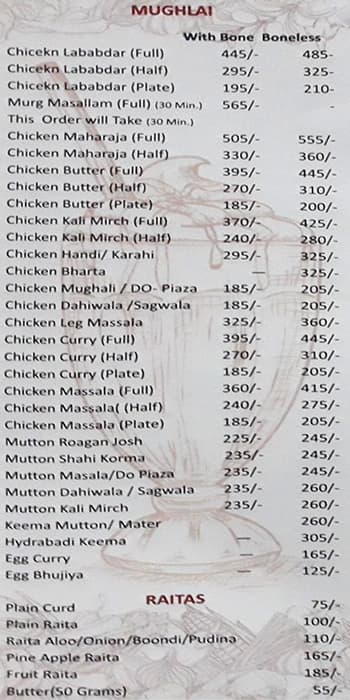 MUGHLAI
With Bone Boneless
Chicekn Lababdar (Full) 445/- 485-
Chicekn Lababdar (Half) 295/- 325-
Chicekn Lababdar (Plate) 195/- 210-
Murg Masallam (Full) (30 Min.) 565/- -
This Order will Take (30 Min.)
Chicken Maharaja (Full) 505/- 555/-
Chicken Maharaja (Half) 330/- 360/-
Chicken Butter (Full) 395/- 445/-
Chicken Butter (Half) 270/- 310/-
Chicken Butter (Plate) 185/- 200/-
Chicken Kali Mirch (Full) 370/- 425/-
Chicken Kali Mirch (Half) 240/- 280/-
Chicken Handi/ Karahi 295/- 325/-
Chicken Bharta — 325/-
Chicken Mughali / DO- Piaza 185/- 205/-
Chicken Dahiwala /Sagwala 185/- 205/-
Chicken Leg Massala 325/- 360/-
Chicken Curry (Full) 395/- 445/-
Chicken Curry (Half) 270/- 310/-
Chicken Curry (Plate) 185/- 205/-
Chicken Massala (Full) 360/- 415/-
Chicken Massala( (Half) 240/- 275/-
Chicken Massala (Plate) 185/- 205/-
Mutton Roagan Josh 225/- 245/-
Mutton Shahi Korma 235/- 245/-
Mutton Masala/Do Piaza 235/- 245/-
Mutton Dahiwala / Sagwala 235/- 260/-
Mutton Kali Mirch 235/- 260/-
Keema Mutton/ Mater 260/-
Hydrabadi Keema — 305/-
Egg Curry — 165/-
Egg Bhujiya — 125/-
RAITAS
Plain Curd 75/-
Plain Raita 100/-
Raita Aloo/Onion/Boondi/Pudina 110/-
Pine Apple Raita 165/-
Fruit Raita 185/-
Butter(50 Grams) 55/-